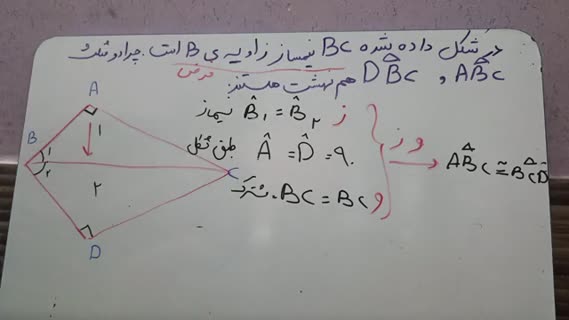 در شکل داده شده BC نیمساز زاویه ی B است. چرا دو مثلث
ABC و DBC هم نهشت هستند؟
فرض
A
B
C
D
1
2
1
2
B̂₁ = B̂₂ نیمساز ز
Â = D̂ = ۹۰ طبق شکل
BC = BC مشترک و
و ز
ABC ≅ BCD